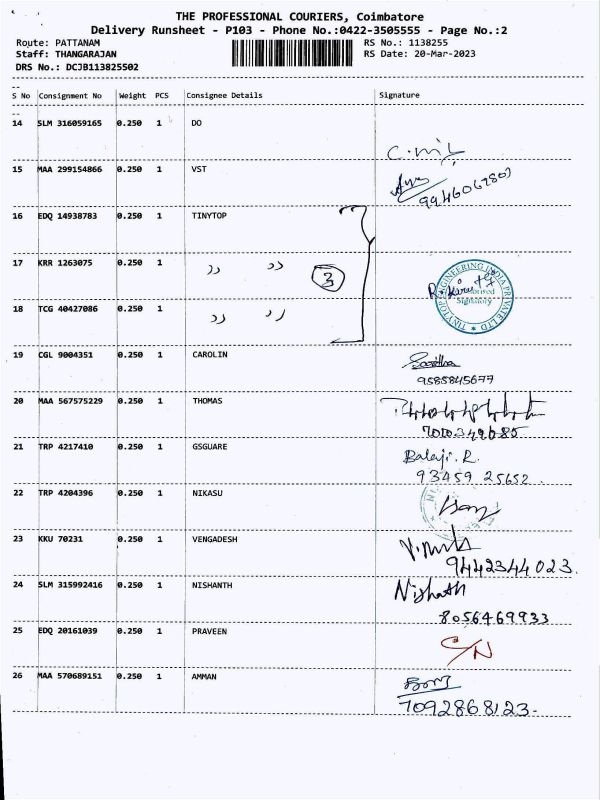 THE PROFESSIONAL COURIERS, Coimbatore
Delivery Runsheet - P103 - Phone No.:0422-3505555 - Page No.:2
Route: PATTANAM RS No.: 1138255
Staff: THANGARAJAN RS Date: 20-Mar-2023
DRS No.: DCJB113825502
S No Consignment No Weight PCS Consignee Details Signature
14 SLM 316059165 0.250 1 DO
15 MAA 299154866 0.250 1 VST
16 EDQ 14938783 0.250 1 TINYTOP
17 KRR 1263075 0.250 1 '' '' 3
TINYTOP ENGINEERING INDIA PRIVATE LTD
Signatory
18 TCG 40427086 0.250 1 '' ''
19 CGL 9004351 0.250 1 CAROLIN
9585845677
20 MAA 567575229 0.250 1 THOMAS
21 TRP 4217410 0.250 1 GSGUARE Balaji. R.
93459 25652
22 TRP 4204396 0.250 1 NIKASU
23 KKU 70231 0.250 1 VENGADESH
9442344023.
24 SLM 315992416 0.250 1 NISHANTH Nishath
8056469933
25 EDQ 20161039 0.250 1 PRAVEEN C/N
26 MAA 570689151 0.250 1 AMMAN
7092868123-